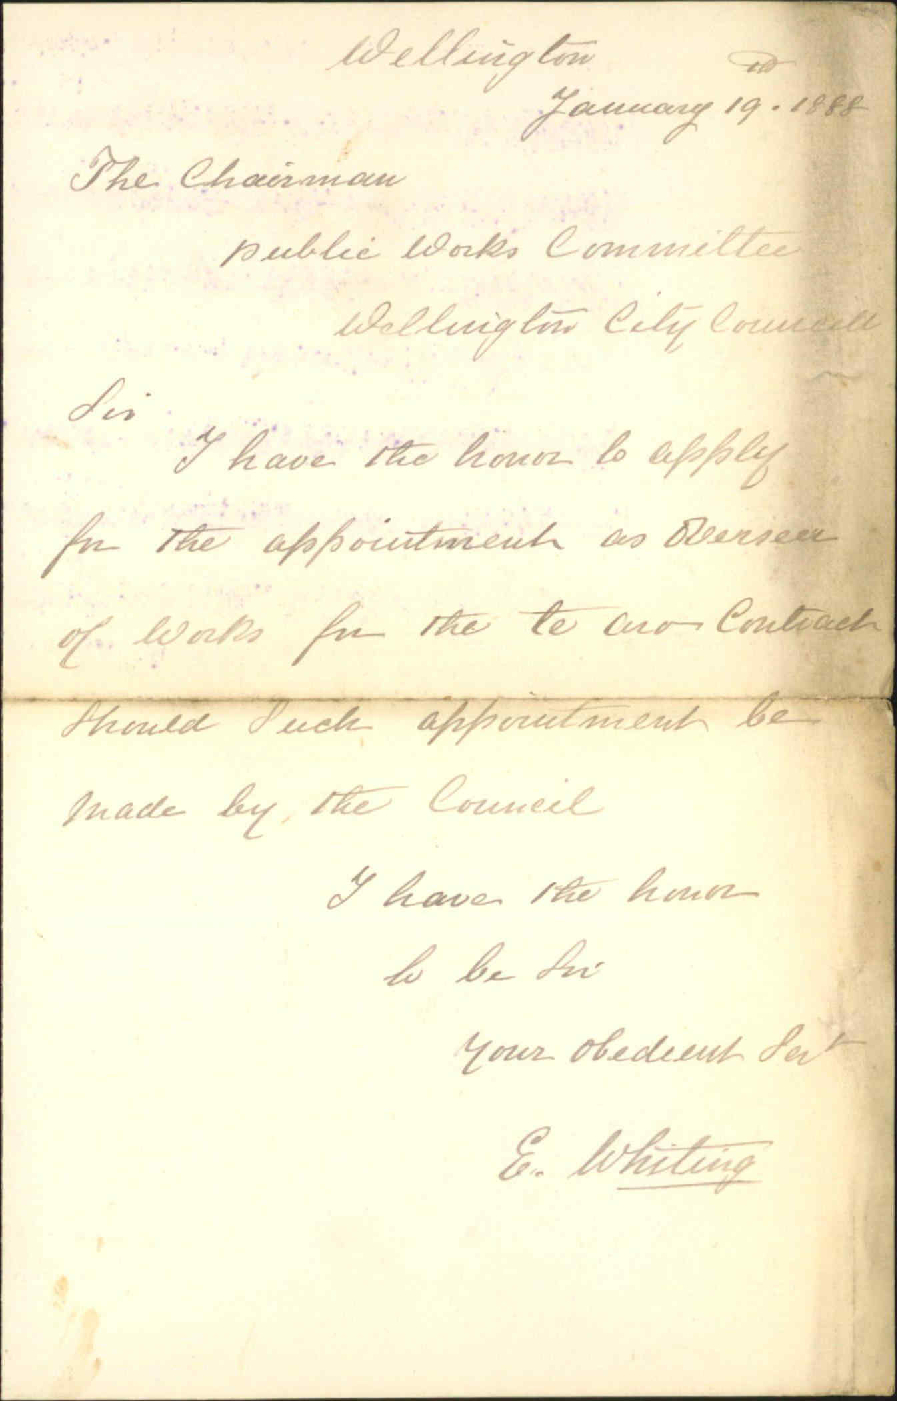 Wellington
January 19th. 1888
The Chairman
Public Works Committee
Wellington City Council
Sir
I have the honor to apply
for the appointment as Overseer
of Works for the te aro Contract
Should Such appointment be
Made by the Council
I have the honor
to be Sir
Your Obedient Servt
E. Whiting